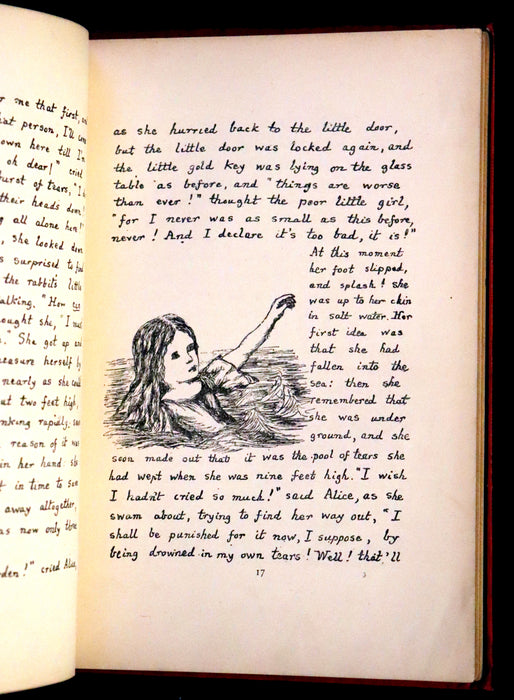 r me that first, and
hat person, I'll come
own here till I'm
oh dear!" cried
burst of tears, "I do
their heads down!
g all alone here!"
, she looked down
s surprised to find
the rabbit's little
alking. "How can
ought she, "I must
." She got up and
measure herself by
nearly as she could
ut two feet high,
inking rapidly: soon
reason of it was
in her hand: she
t in time to save
away altogether,
as now only three
den!" cried Alice,
as she hurried back to the little door,
but the little door was locked again, and
the little gold key was lying on the glass
table as before, and "things are worse
than ever!" thought the poor little girl,
"for I never was as small as this before,
never! And I declare it's too bad, it is!"
At this moment
her foot slipped,
and splash! she
was up to her chin
in salt water. Her
first idea was
that she had
fallen into the
sea: then she
remembered that
she was under
ground, and she
soon made out that it was the pool of tears she
had wept when she was nine feet high. "I wish
I hadn't cried so much!" said Alice, as she
swam about, trying to find her way out, "I
shall be punished for it now, I suppose, by
being drowned in my own tears! Well! that'll
17